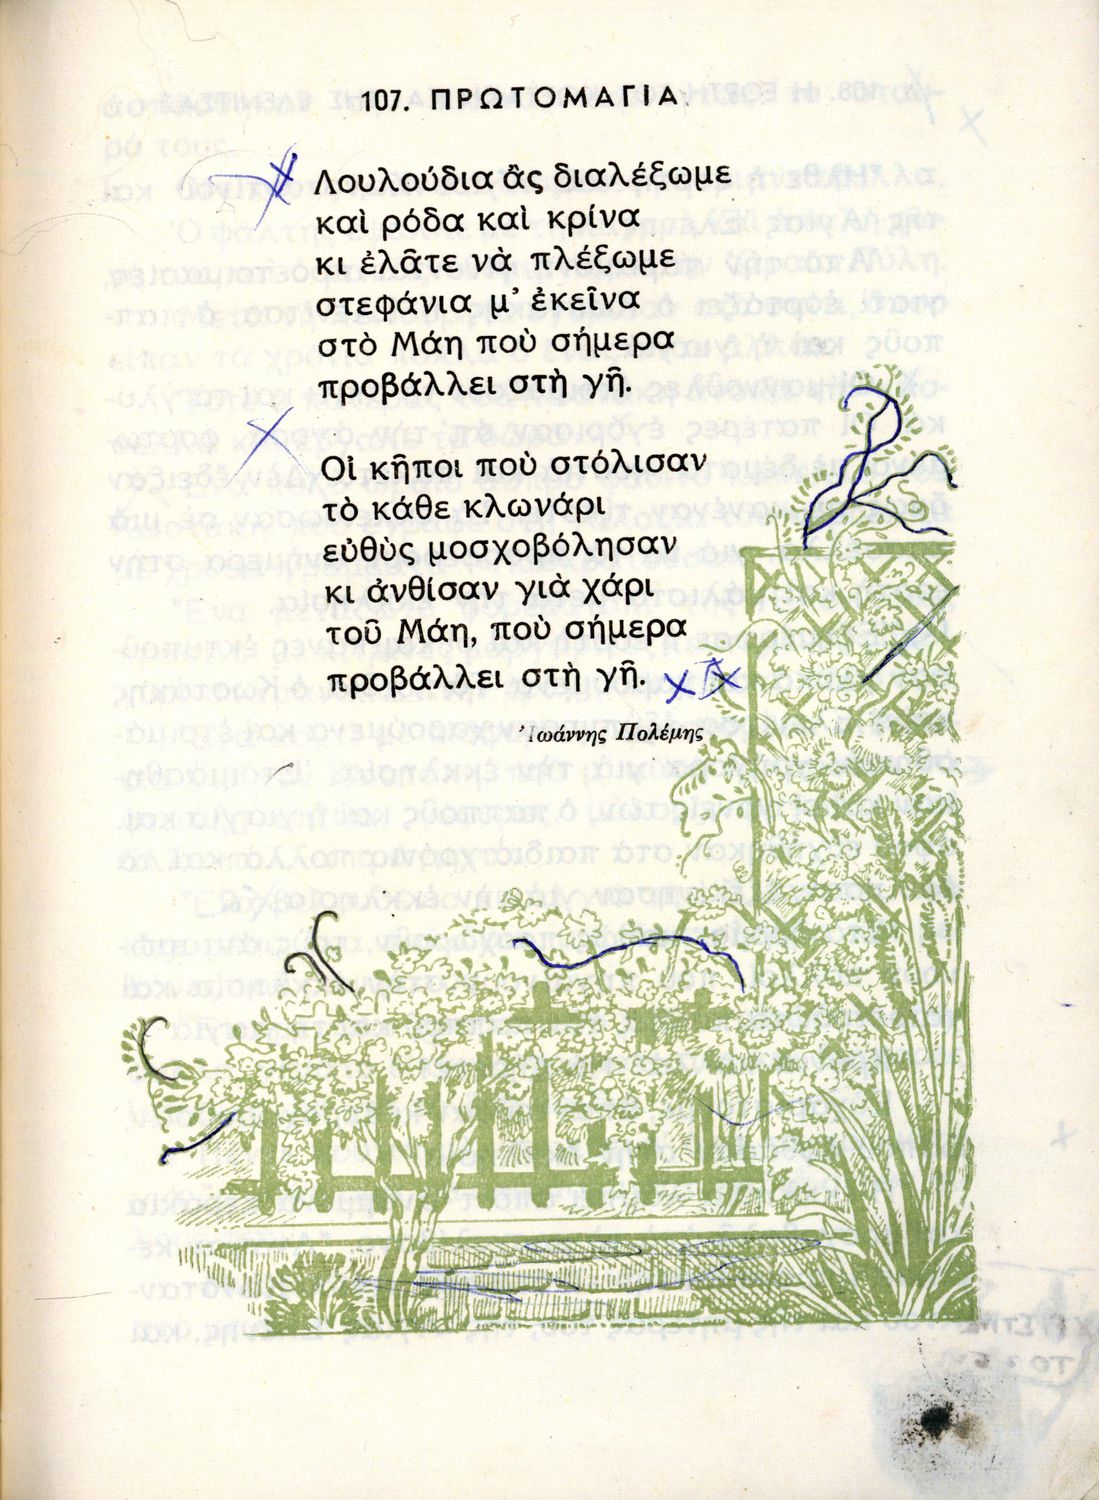 107. ΠΡΩΤΟΜΑΓΙΑ.
Λουλούδια ἂς διαλέξωμε
καὶ ρόδα καὶ κρίνα
κι ἐλᾶτε νὰ πλέξωμε
στεφάνια μ' ἐκεῖνα
στὸ Μάη ποὺ σήμερα
προβάλλει στὴ γῆ.
Οἱ κῆποι ποὺ στόλισαν
τὸ κάθε κλωνάρι
εὐθὺς μοσχοβόλησαν
κι ἀνθίσαν γιὰ χάρι
τοῦ Μάη, ποὺ σήμερα
προβάλλει στὴ γῆ.
Ἰωάννης Πολέμης